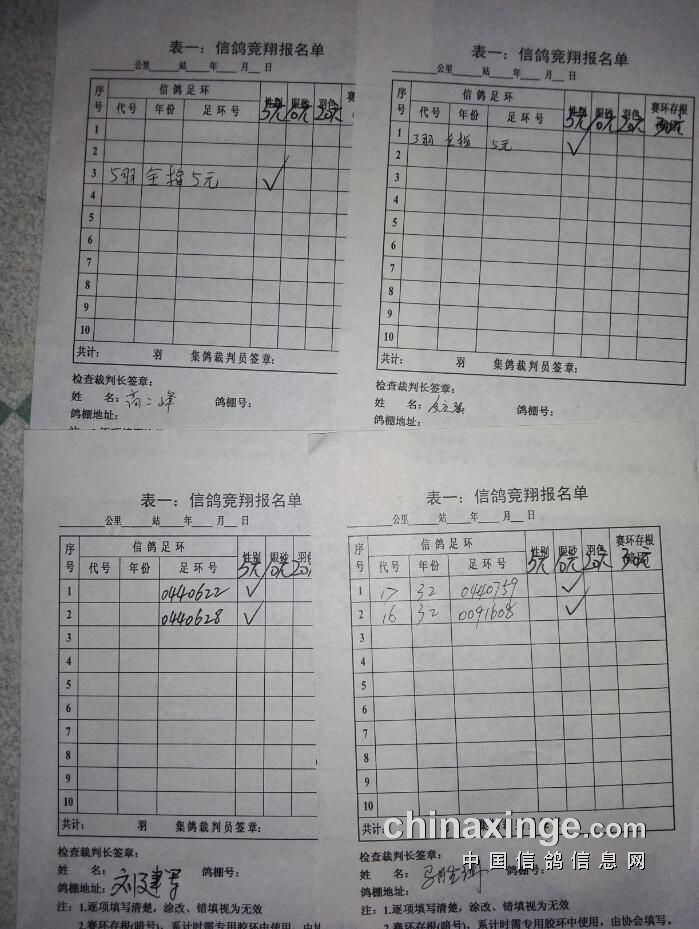 表一：信鸽竞翔报名单
公里 站 年 月 日
序号 信鸽足环 性别 眼砂 羽色 赛
代号 年份 足环号 5元 10元 20元
1
2
3 5羽 全指 5元 ✓
4
5
6
7
8
9
10
共计： 羽 集鸽裁判员签章：
检查裁判长签章：
姓 名： 高二峰 鸽棚号：
鸽棚地址：
表一：信鸽竞翔报名单
公里 站 年 月 日
序号 信鸽足环 性别 眼砂 羽色 赛环存根
代号 年份 足环号 5元 10元 20元
1 3羽 全指 5元 ✓
2
3
4
5
6
7
8
9
10
共计： 羽 集鸽裁判员签章：
检查裁判长签章：
姓 名： 鸽棚号：
鸽棚地址：
表一：信鸽竞翔报名单
公里 站 年 月 日
序号 信鸽足环 性别 眼砂 羽色
代号 年份 足环号 5元 10元 20元
1 0440622 ✓
2 0440628 ✓
3
4
5
6
7
8
9
10
共计： 羽 集鸽裁判员签章：
检查裁判长签章：
姓 名： 鸽棚号：
鸽棚地址：
注：1.逐项填写清楚，涂改、错填视为无效
2.赛环存根(暗号)，系计时需专用胶环中使用，由协
表一：信鸽竞翔报名单
公里 站 年 月 日
序号 信鸽足环 性别 眼砂 羽色 赛环存根
代号 年份 足环号 5元 10元 20元
1 17 32 0440759 ✓
2 16 32 0091608 ✓
3
4
5
6
7
8
9
10
共计： 羽 集鸽裁判员签章：
检查裁判长签章：
姓 名： 鸽棚号：
鸽棚地址：
注：1.逐项填写清楚，涂改、错填视为无效
2.赛环存根(暗号)，系计时需专用胶环中使用，由协会填写。
chinaxinge.com
中国信鸽信息网